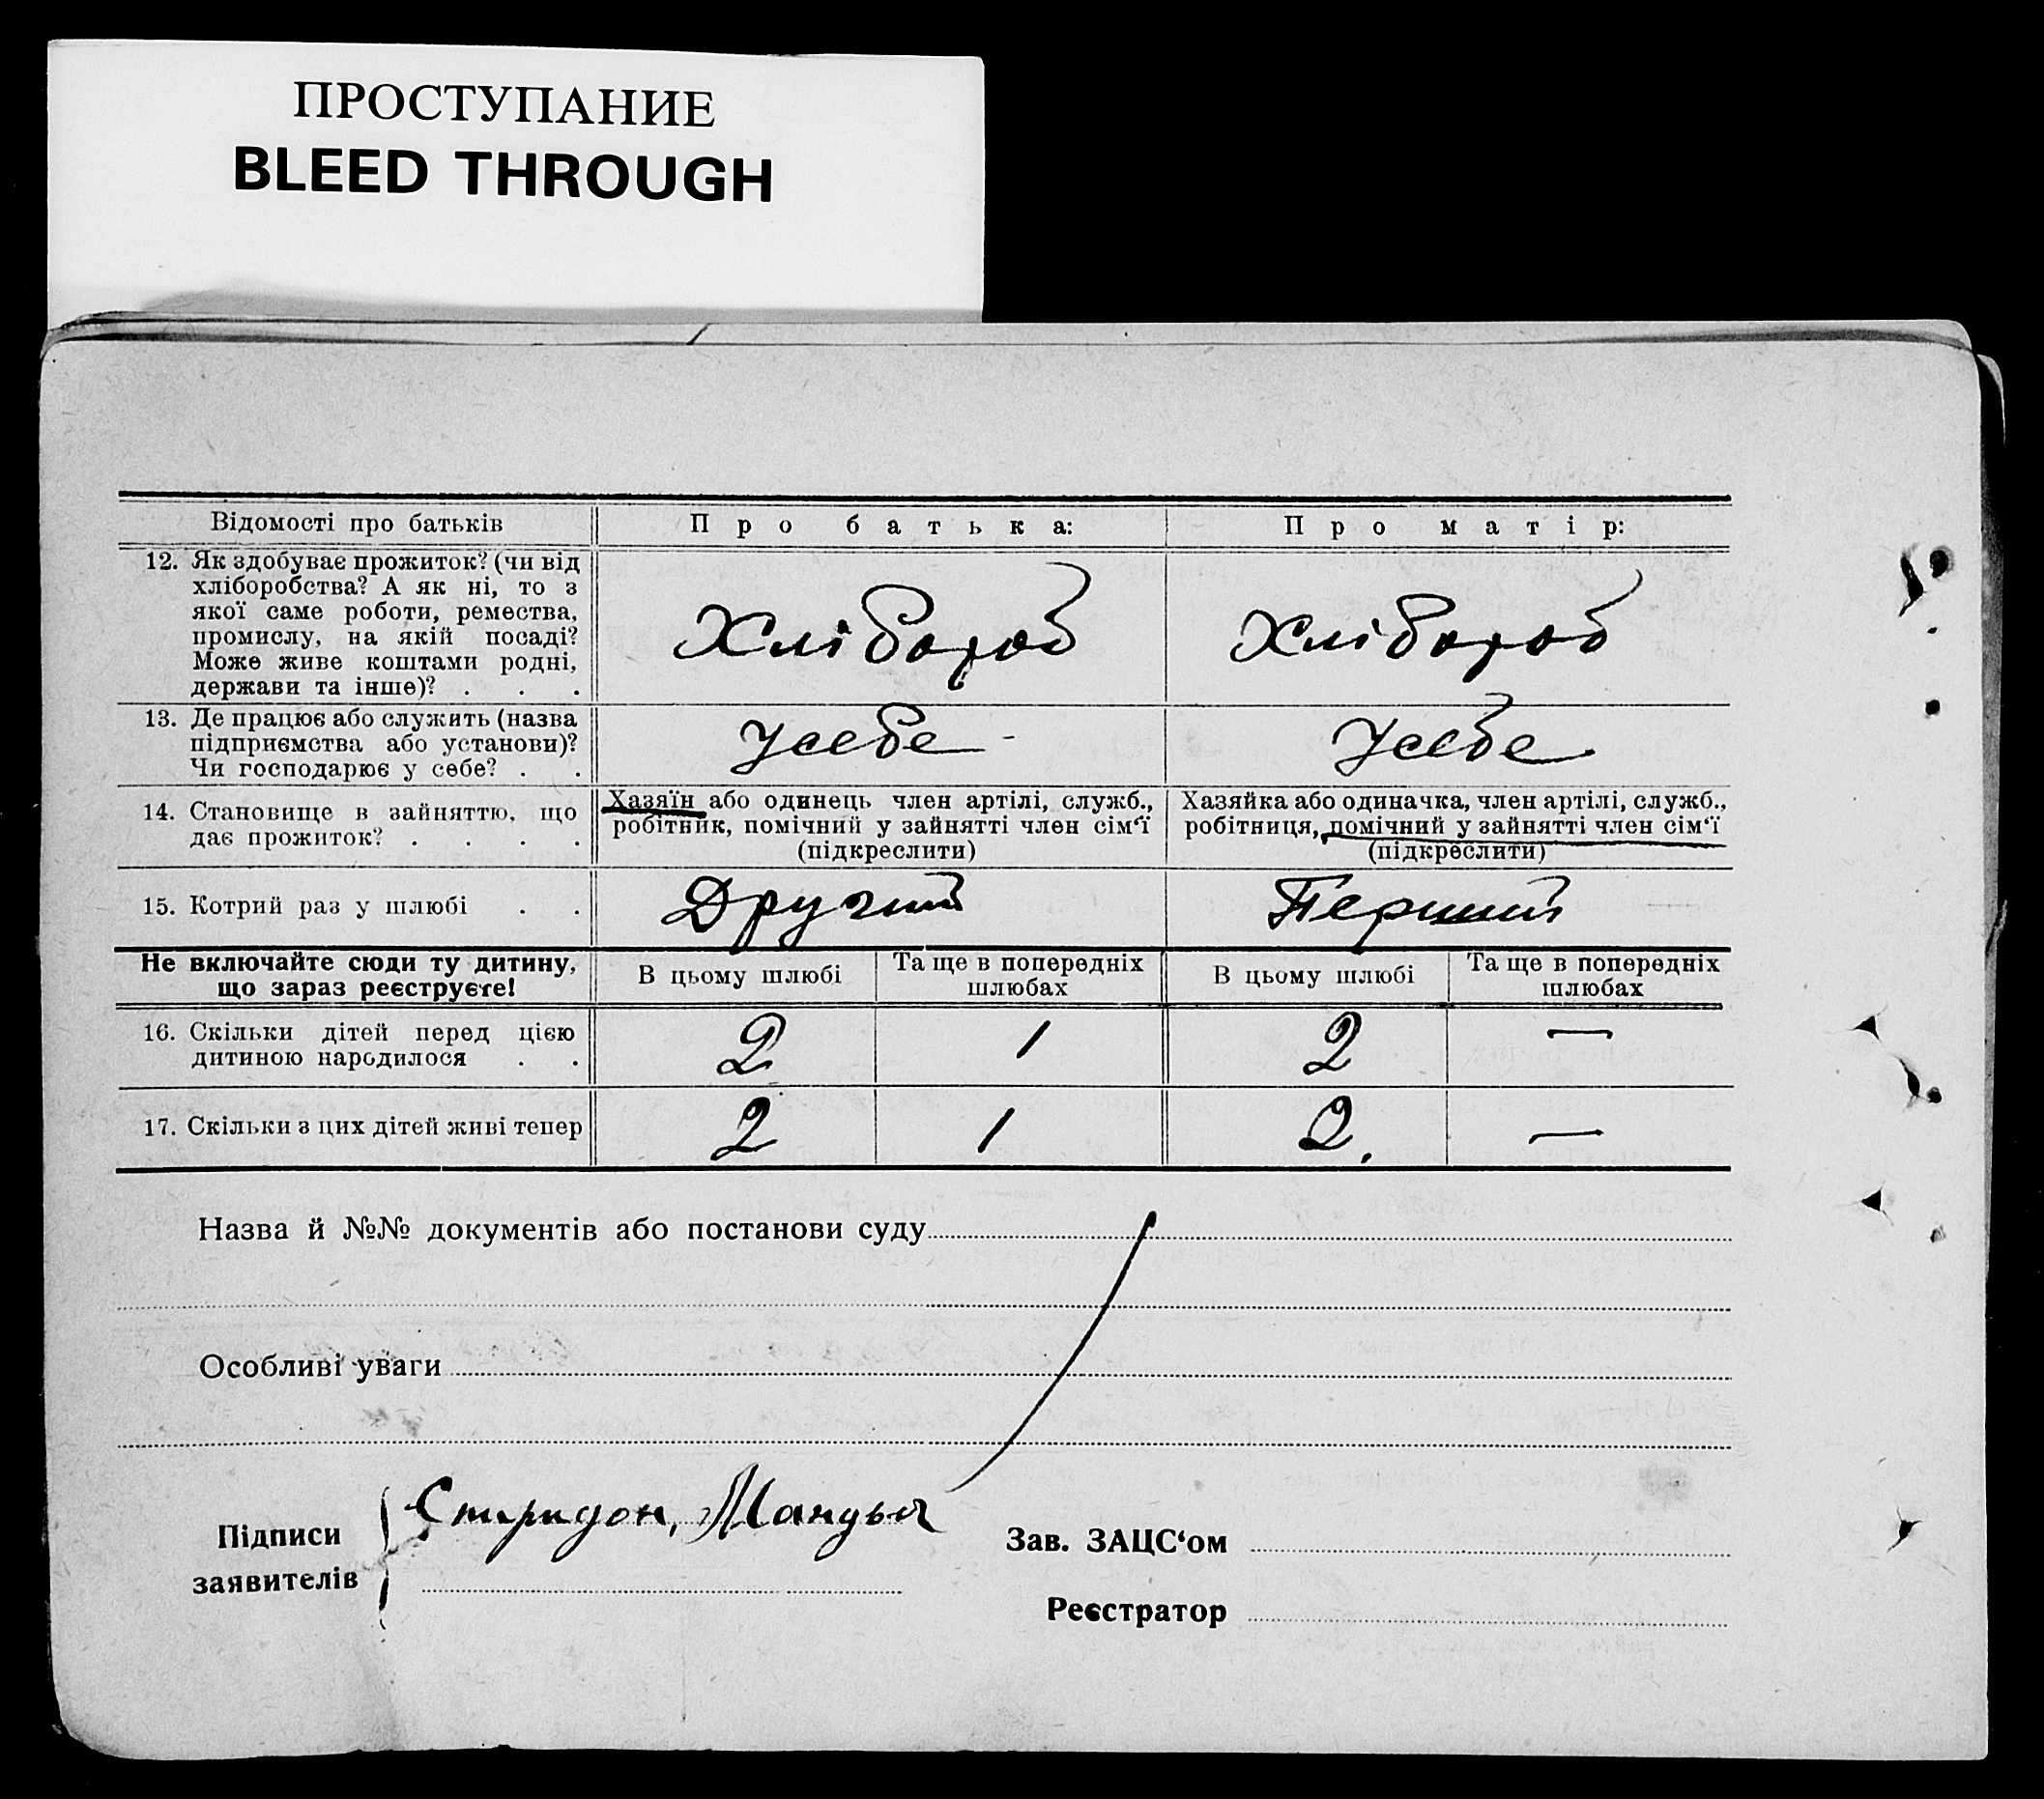 ПРОСТУПАНИЕ
BLEED THROUGH
Відомості про батьків
Про батька:
Про матір:
12. Як здобуває прожиток? (чи від
хліборобства? А як ні, то з
якої саме роботи, ремества,
промислу, на якій посаді?
Може живе коштами родні,
держави та інше)? . . .
Хлібороб
Хлібороб
13. Де працює або служить (назва
підприємства або установи)?
Чи господарює у себе? . .
Усебе
Усебе
14. Становище в зайняттю, що
дає прожиток? . . . .
Хазяїн або одинець член артілі, служб.,
робітник, помічний у зайнятті член сім‘ї
(підкреслити)
Хазяйка або одиначка, член артілі, служб.,
робітниця, помічний у зайнятті член сім‘ї
(підкреслити)
15. Котрий раз у шлюбі . .
Другий
Перший
Не включайте сюди ту дитину,
що зараз реєструєте!
В цьому шлюбі
Та ще в попередніх
шлюбах
В цьому шлюбі
Та ще в попередніх
шлюбах
16. Скільки дітей перед цією
дитиною народилося . .
2
1
2
—
17. Скільки з цих дітей живі тепер
2
1
2.
—
Назва й №№ документів або постанови суду
Особливі уваги
Підписи
заявителів
Спиридон,
Зав. ЗАЦС‘ом
Реєстратор